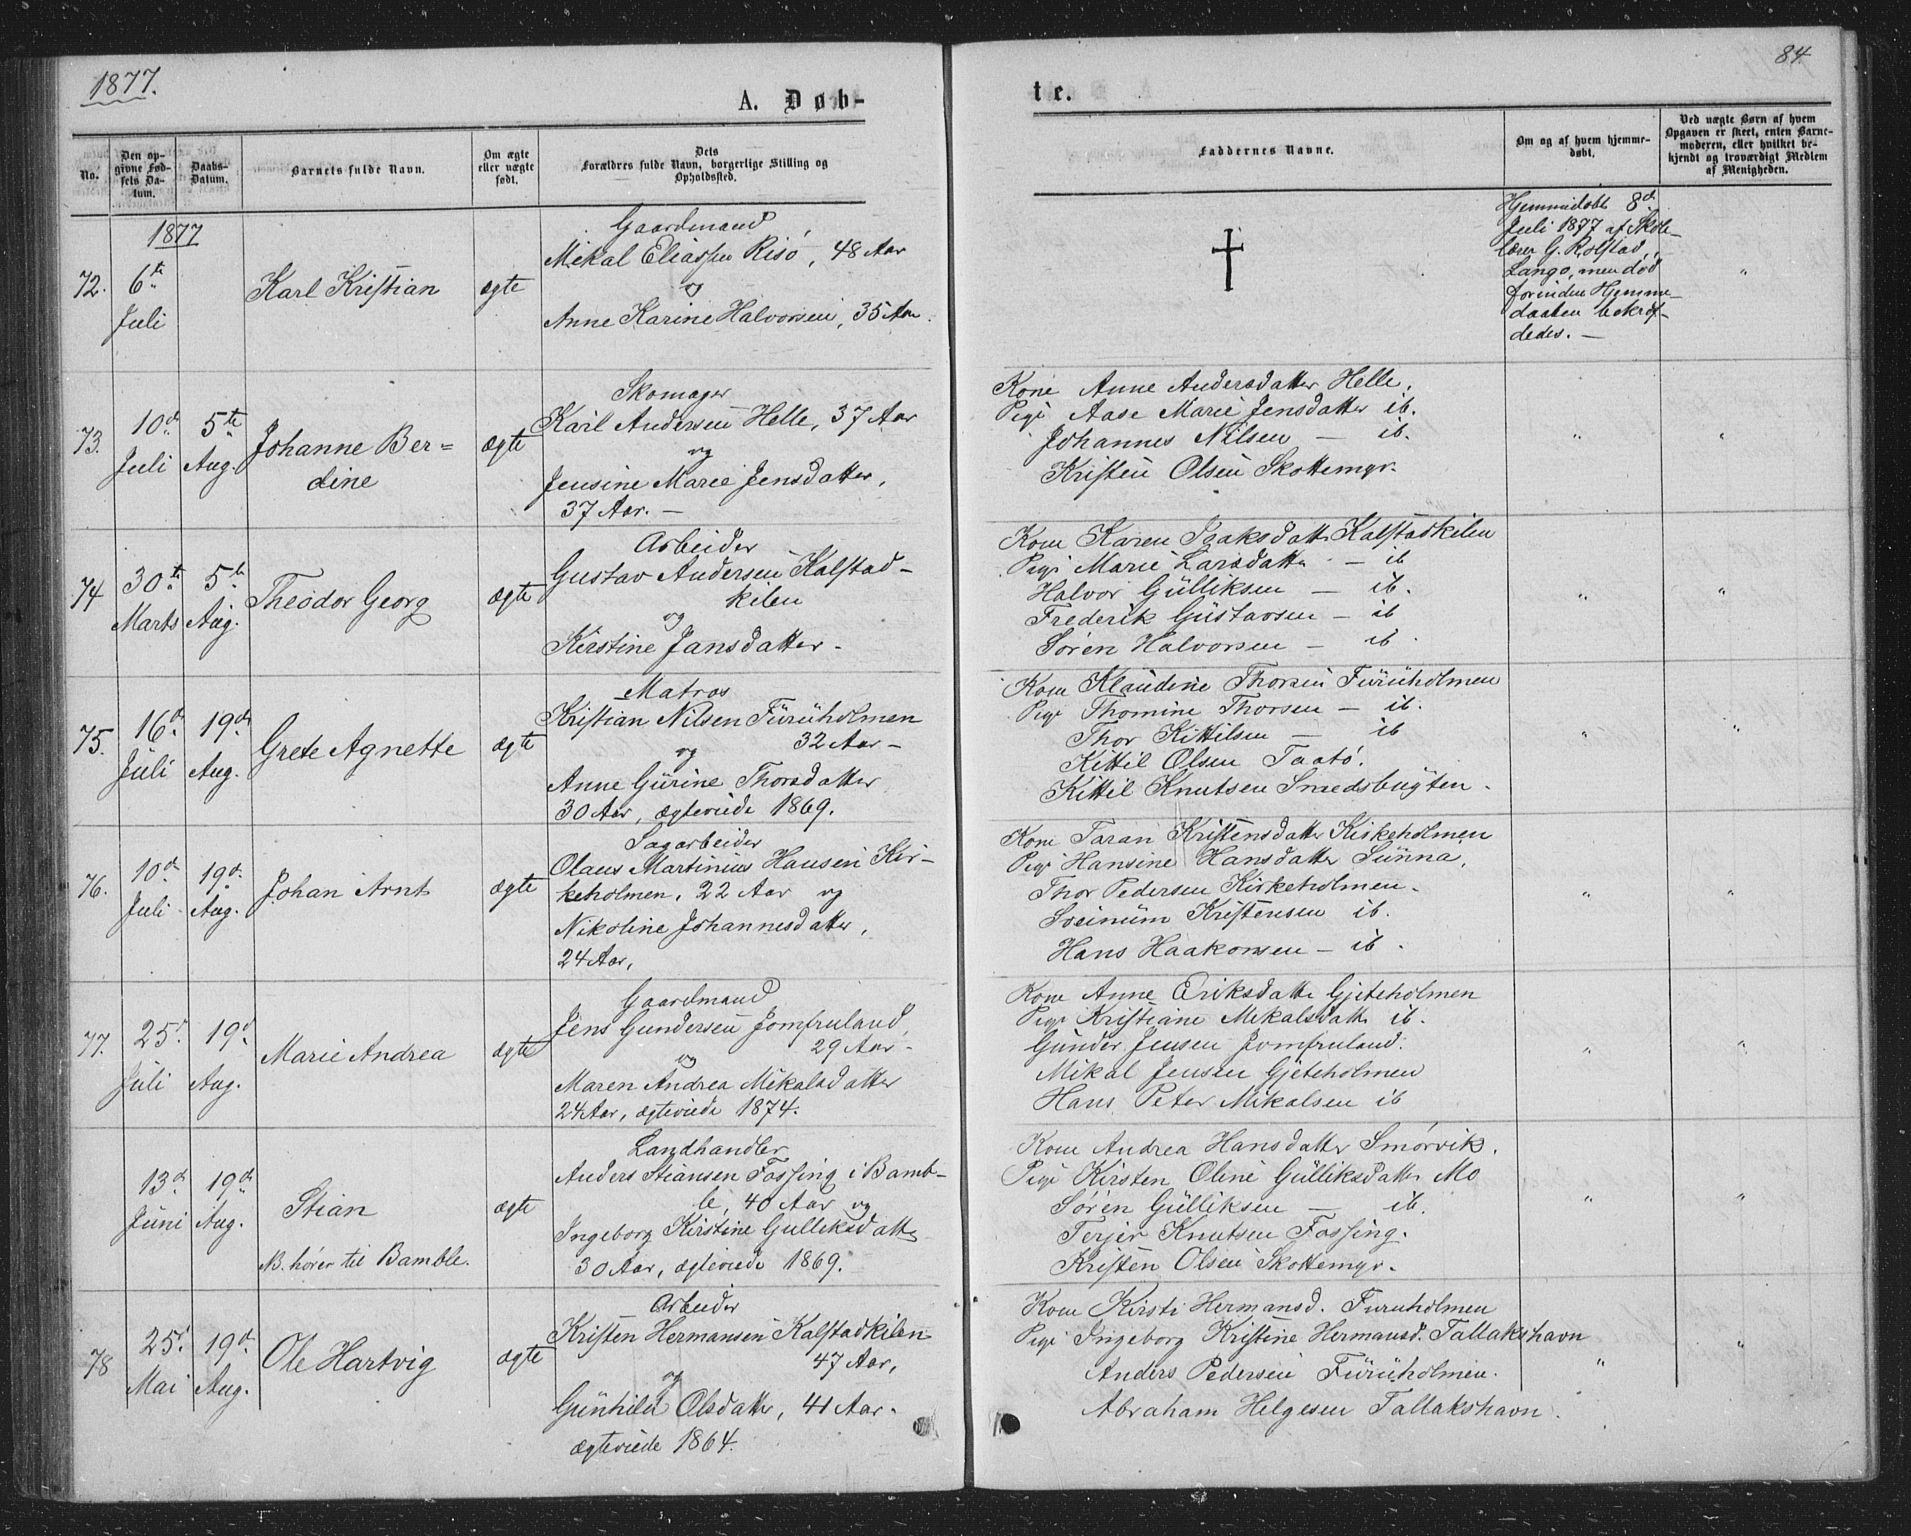 1877.
84.
A. Døb-
te.
No.
Den op-
givne Fød-
sels Da-
tum.
Daabs-
Datum.
Barnets fulde Navn.
Om ægte
eller uægte
født.
Dets
Forældres fulde Navn, borgerlige Stilling og
Opholdssted.
Faddernes Navne.
Om og af hvem hjemme-
døbt.
Ved uægte Børn af hvem
Opgaven er skeet, enten Barne-
moderen, eller hvilket be-
kjendt og troværdigt Medlem
af Menigheden.
1877
72.
6te
Juli
Karl Kristian
ægte
Gaardmand
Mikal Eliassen Risø, 48 Aar
og
Anne Karine Halvorsen, 35 Aar.
†
Hjemmedøbt 8d
Juli 1877 af Skole-
lærer G. Rolfstad,
Langø, men død
forinden Hjemme-
daaben bekræf-
tedes. —
"
73.
10d
Juli
5te
Aug.
Johanne Ber-
dine
ægte
Skomager
Karl Andersen Helle, 37 Aar
og
Jensine Marie Jensdatter,
37 Aar. —
Kone Anne Andersdatter Helle.
Pige Aase Marie Jensdatter ib.
Johannes Nilsen — ib.
Kristen Olsen Skottemyr.
"
"
74
30te
Marts
5te
Aug.
Theodor Georg
ægte
Arbeider
Gustav Andersen Kalstad-
kilen
og
Kirstine Jansdatter.
Kone Karen Isaksdatt. Kalstadkilen
Pige Marie Larsdatter — ib
Halvor Gulliksen — ib.
Frederik Gustavsen — ib
Søren Halvorsen — ib.
"
"
75.
16d
Juli
19d
Aug.
Grete Agnette
ægte
Matros
Kristian Nilsen Furuholmen
32 Aar —
og
Anne Gurine Thorsdatter
30 Aar, ægteviede 1869.
Kone Klaudine Thorsen Furuholmen
Pige Thomine Thorsen — ib.
Thor Kittilsen — ib
Kittil Olsen Taatø.
Kittil Knutsen Smedsbugten.
"
"
76.
10d
Juli
19d
Aug.
Johan Arnt
ægte
Sagarbeider
Olaus Martinius Hansen Kir-
keholmen, 22 Aar og
Nikoline Johannesdatter,
24 Aar,
Kone Taran Kristensdatter Kirkeholmen
Pige Hansine Hansdatter Sunna,
Thor Pedersen Kirkeholmen.
Sveinum Kristensen ib.
Hans Haakonsen — ib.
"
"
77.
25d
Juli
19d
Aug.
Marie Andrea
ægte
Gaardmand
Jens Gundersen Jomfruland,
29 Aar —
og
Maren Andrea Mikalsdatter
24 Aar, ægteviede 1874.
Kone Anne Eriksdatt. Gjeteholmen
Pige Kristiane Mikalsdatt. ib.
Gunder Jensen Jomfruland.
Mikal Jensen Gjeteholmen
Hans Peter Mikalsen ib
"
"
13d
Juni
19d
Aug.
Stian
NB. hører til Bamble.
ægte
Landhandler
Anders Stiansen Fossing i Bamb-
le, 40 Aar og
Ingeborg Kirstine Gulliksdatt.
30 Aar, ægteviede 1869.
Kone Andrea Hansdatter Smørvik.
Pige Kirsten Oline Gulliksdatter Mo
Søren Gulliksen — ib.
Terjer Knutsen Fossing.
Kristen Olsen Skottemyr.
"
"
78
25d
Mai
19d
Aug.
Ole Hartvig
ægte
Arbeider
Kristen Hermansen Kalstadkilen
47 Aar,
og
Gunhild Olsdatter, 41 Aar.
ægteviede 1864.
Kone Kirsti Hermansd. Furuholmen
Pige Ingeborg Kristine Hermansd. Tallakshavn
Anders Pedersen Furuholmen.
Abraham Helgesen Tallakshavn.
"
"